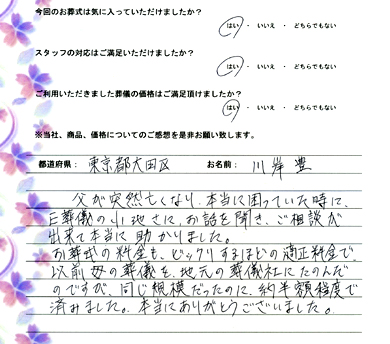 今回のお葬式は気に入っていただけましたか？
はい ・ いいえ ・ どちらでもない
スタッフの対応はご満足いただけましたか？
はい ・ いいえ ・ どちらでもない
ご利用いただきました葬儀の価格はご満足頂けましたか？
はい ・ いいえ ・ どちらでもない
※当社、商品、価格についてのご感想を是非お願い致します。
都道府県： 東京都大田区 お名前： 川岸 豊
父が突然亡くなり、本当に困っていた時に、
葬儀の小池さんに、お話を聞き、ご相談が
出来て本当に助かりました。
お葬式の料金も、ビックリするほどの適正料金で、
以前母の葬儀を、地元の葬儀社にたのんだ
のですが、同じ規模だったのに、約半額程度で
済みました。本当にありがとうございました。